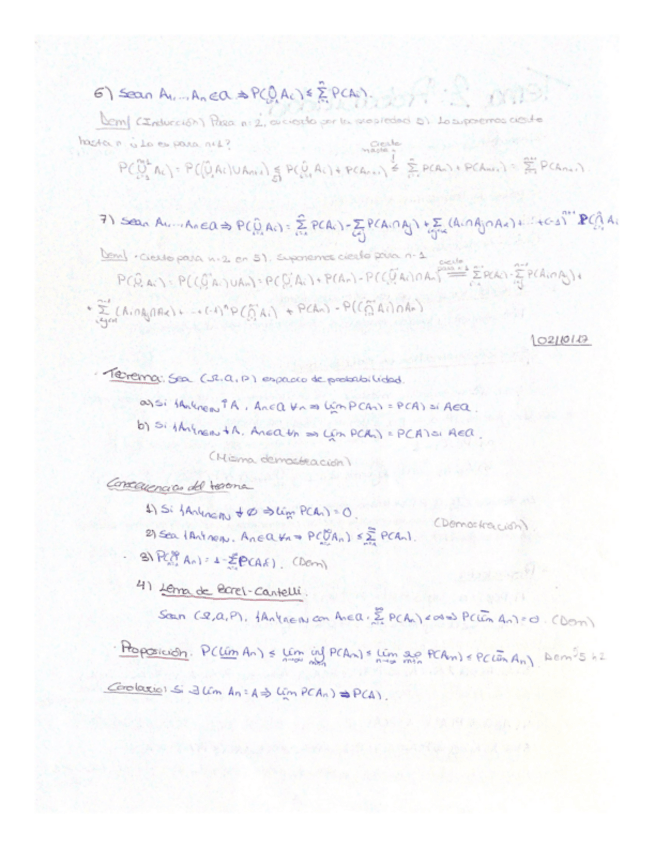 6) Sean A₁,...,Aₙ ∈ a ⇒ P(⋃ᵢ₌₁ⁿ Aᵢ) ≤ Σᵢ₌₁ⁿ P(Aᵢ).
Dem/ (Inducción) Para n=2, es cierto por la propiedad 5). Lo suponemos cierto
hasta n ¿Lo es para n+1?
cierto hasta n
P(⋃ᵢ₌₁ⁿ⁺¹ Aᵢ) = P((⋃ᵢ₌₁ⁿ Aᵢ) ∪ Aₙ₊₁) ≤ P(⋃ᵢ₌₁ⁿ Aᵢ) + P(Aₙ₊₁) ≤ Σᵢ₌₁ⁿ P(Aᵢ) + P(Aₙ₊₁) = Σᵢ₌₁ⁿ⁺¹ P(Aₙ₊₁)
7) Sean A₁,...,Aₙ ∈ a ⇒ P(⋃ᵢ₌₁ⁿ Aᵢ) = Σᵢ₌₁ⁿ P(Aᵢ) - Σ P(Aᵢ∩Aⱼ) + Σ (Aᵢ∩Aⱼ∩Aₖ) + ... + (-1)ⁿ⁺¹ P(⋂ᵢ₌₁ⁿ Aᵢ
Dem/ - Cierto para n=2 en 5). Suponemos cierto para n-1
P(⋃ Aᵢ) = P((⋃ Aᵢ) ∪ Aₙ) = P(⋃ Aᵢ) + P(Aₙ) - P((⋃ Aᵢ) ∩ Aₙ) = Σ P(Aᵢ) - Σ P(Aᵢ∩Aⱼ) +
+ Σ (Aᵢ∩Aⱼ∩Aₖ) + ... + (-1)ⁿ P(⋂ Aᵢ) + P(Aₙ) - P((⋂ Aᵢ) ∩ Aₙ)
02/10/17
· Teorema: Sea (Ω, a, P) espacio de probabilidad.
a) Si {Aₙ}ₙ∈ℕ ↑ A, Aₙ∈a ∀n ⇒ lim P(Aₙ) = P(A) si A∈a.
b) Si {Aₙ}ₙ∈ℕ ↓ A, Aₙ∈a ∀n ⇒ lim P(Aₙ) = P(A) si A∈a.
(Misma demostración)
Consecuencias del teorema
1) Si {Aₙ}ₙ∈ℕ ↓ ∅ ⇒ lim P(Aₙ) = 0
2) Sea {Aₙ}ₙ∈ℕ, Aₙ∈a ∀n ⇒ P(⋃ₙ₌₁^∞ Aₙ) ≤ Σₙ₌₁^∞ P(Aₙ).
(Demostración)
· 3) P(⋂ₙ₌₁^∞ Aₙ) = 1 - Σ P(Aₙᶜ). (Dem)
4) Lema de Borel-Cantelli.
Sean (Ω, a, P), {Aₙ}ₙ∈ℕ con Aₙ∈a, Σₙ₌₁^∞ P(Aₙ) < ∞ ⇒ P(lim̅ Aₙ) = 0. (Dem)
· Proposición. P(lim̲ Aₙ) ≤ lim inf P(Aₘ) ≤ lim sup P(Aₘ) ≤ P(lim̅ Aₙ)
Corolario: Si ∃ lim Aₙ = A ⇒ lim P(Aₙ) ⇒ P(A).